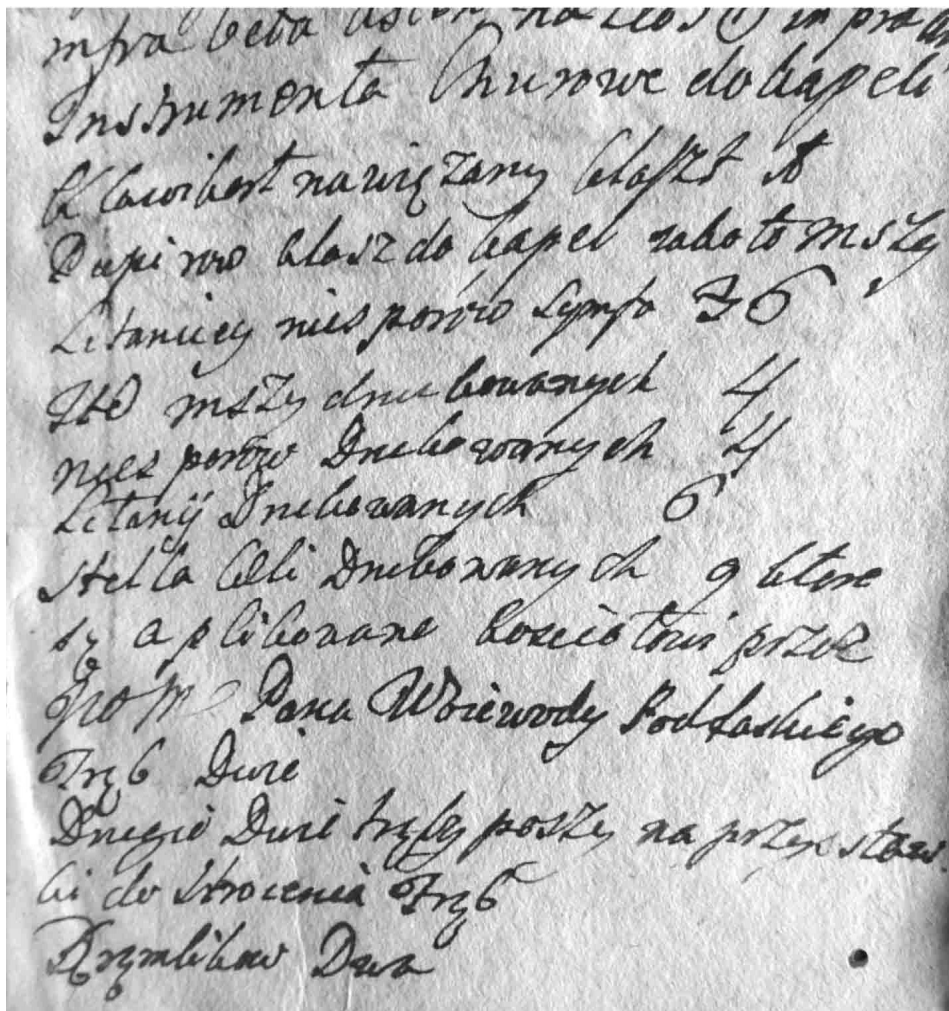 infra beta
Instrumenta Churowe do kapeli
Klawikort nawiązany klaszt
Papirow klasz do kapel mszy
Litaniiey niesporow Symfo 36
mszy drukowanych 4
niesporow Drukowanych 4
Litanij Drukowanych 6
Stella Cæli Drukowanych 9 ktore
są aplikowane kosciołowi przez
Pana Woiewody Podlaskiego
Trąb Dwie
Drugie Dwie trąby poszły na przystaw
ki do strocenia Trąb
Dwa